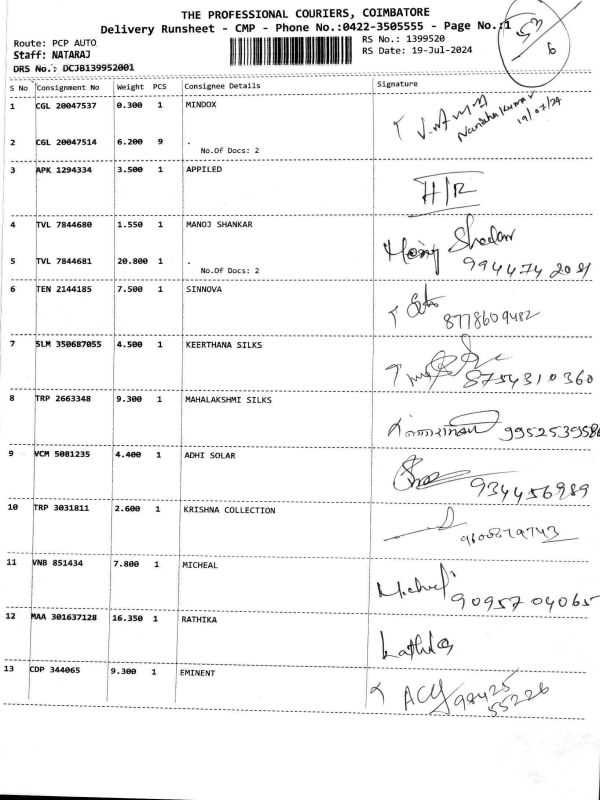 THE PROFESSIONAL COURIERS, COIMBATORE
Delivery Runsheet - CMP - Phone No.:0422-3505555 - Page No.:1
Route: PCP AUTO RS No.: 1399520
Staff: NATARAJ RS Date: 19-Jul-2024
DRS No.: DCJB139952001
S No Consignment No Weight PCS Consignee Details Signature
1 CGL 20047537 0.300 1 MINDOX
19/07/24
2 CGL 20047514 6.200 9 .
No.Of Docs: 2
3 APK 1294334 3.500 1 APPILED H/R
4 TVL 7844680 1.550 1 MANOJ SHANKAR
5 TVL 7844681 20.800 1 .
No.Of Docs: 2
6 TEN 2144185 7.500 1 SINNOVA
8778609482
7 SLM 350687055 4.500 1 KEERTHANA SILKS
8754310360
8 TRP 2663348 9.300 1 MAHALAKSHMI SILKS
9 VCM 5081235 4.400 1 ADHI SOLAR
934456989
10 TRP 3031811 2.600 1 KRISHNA COLLECTION
11 VNB 851434 7.800 1 MICHEAL
9095704065
12 MAA 301637128 16.350 1 RATHIKA
13 CDP 344065 9.300 1 EMINENT
98425
55226